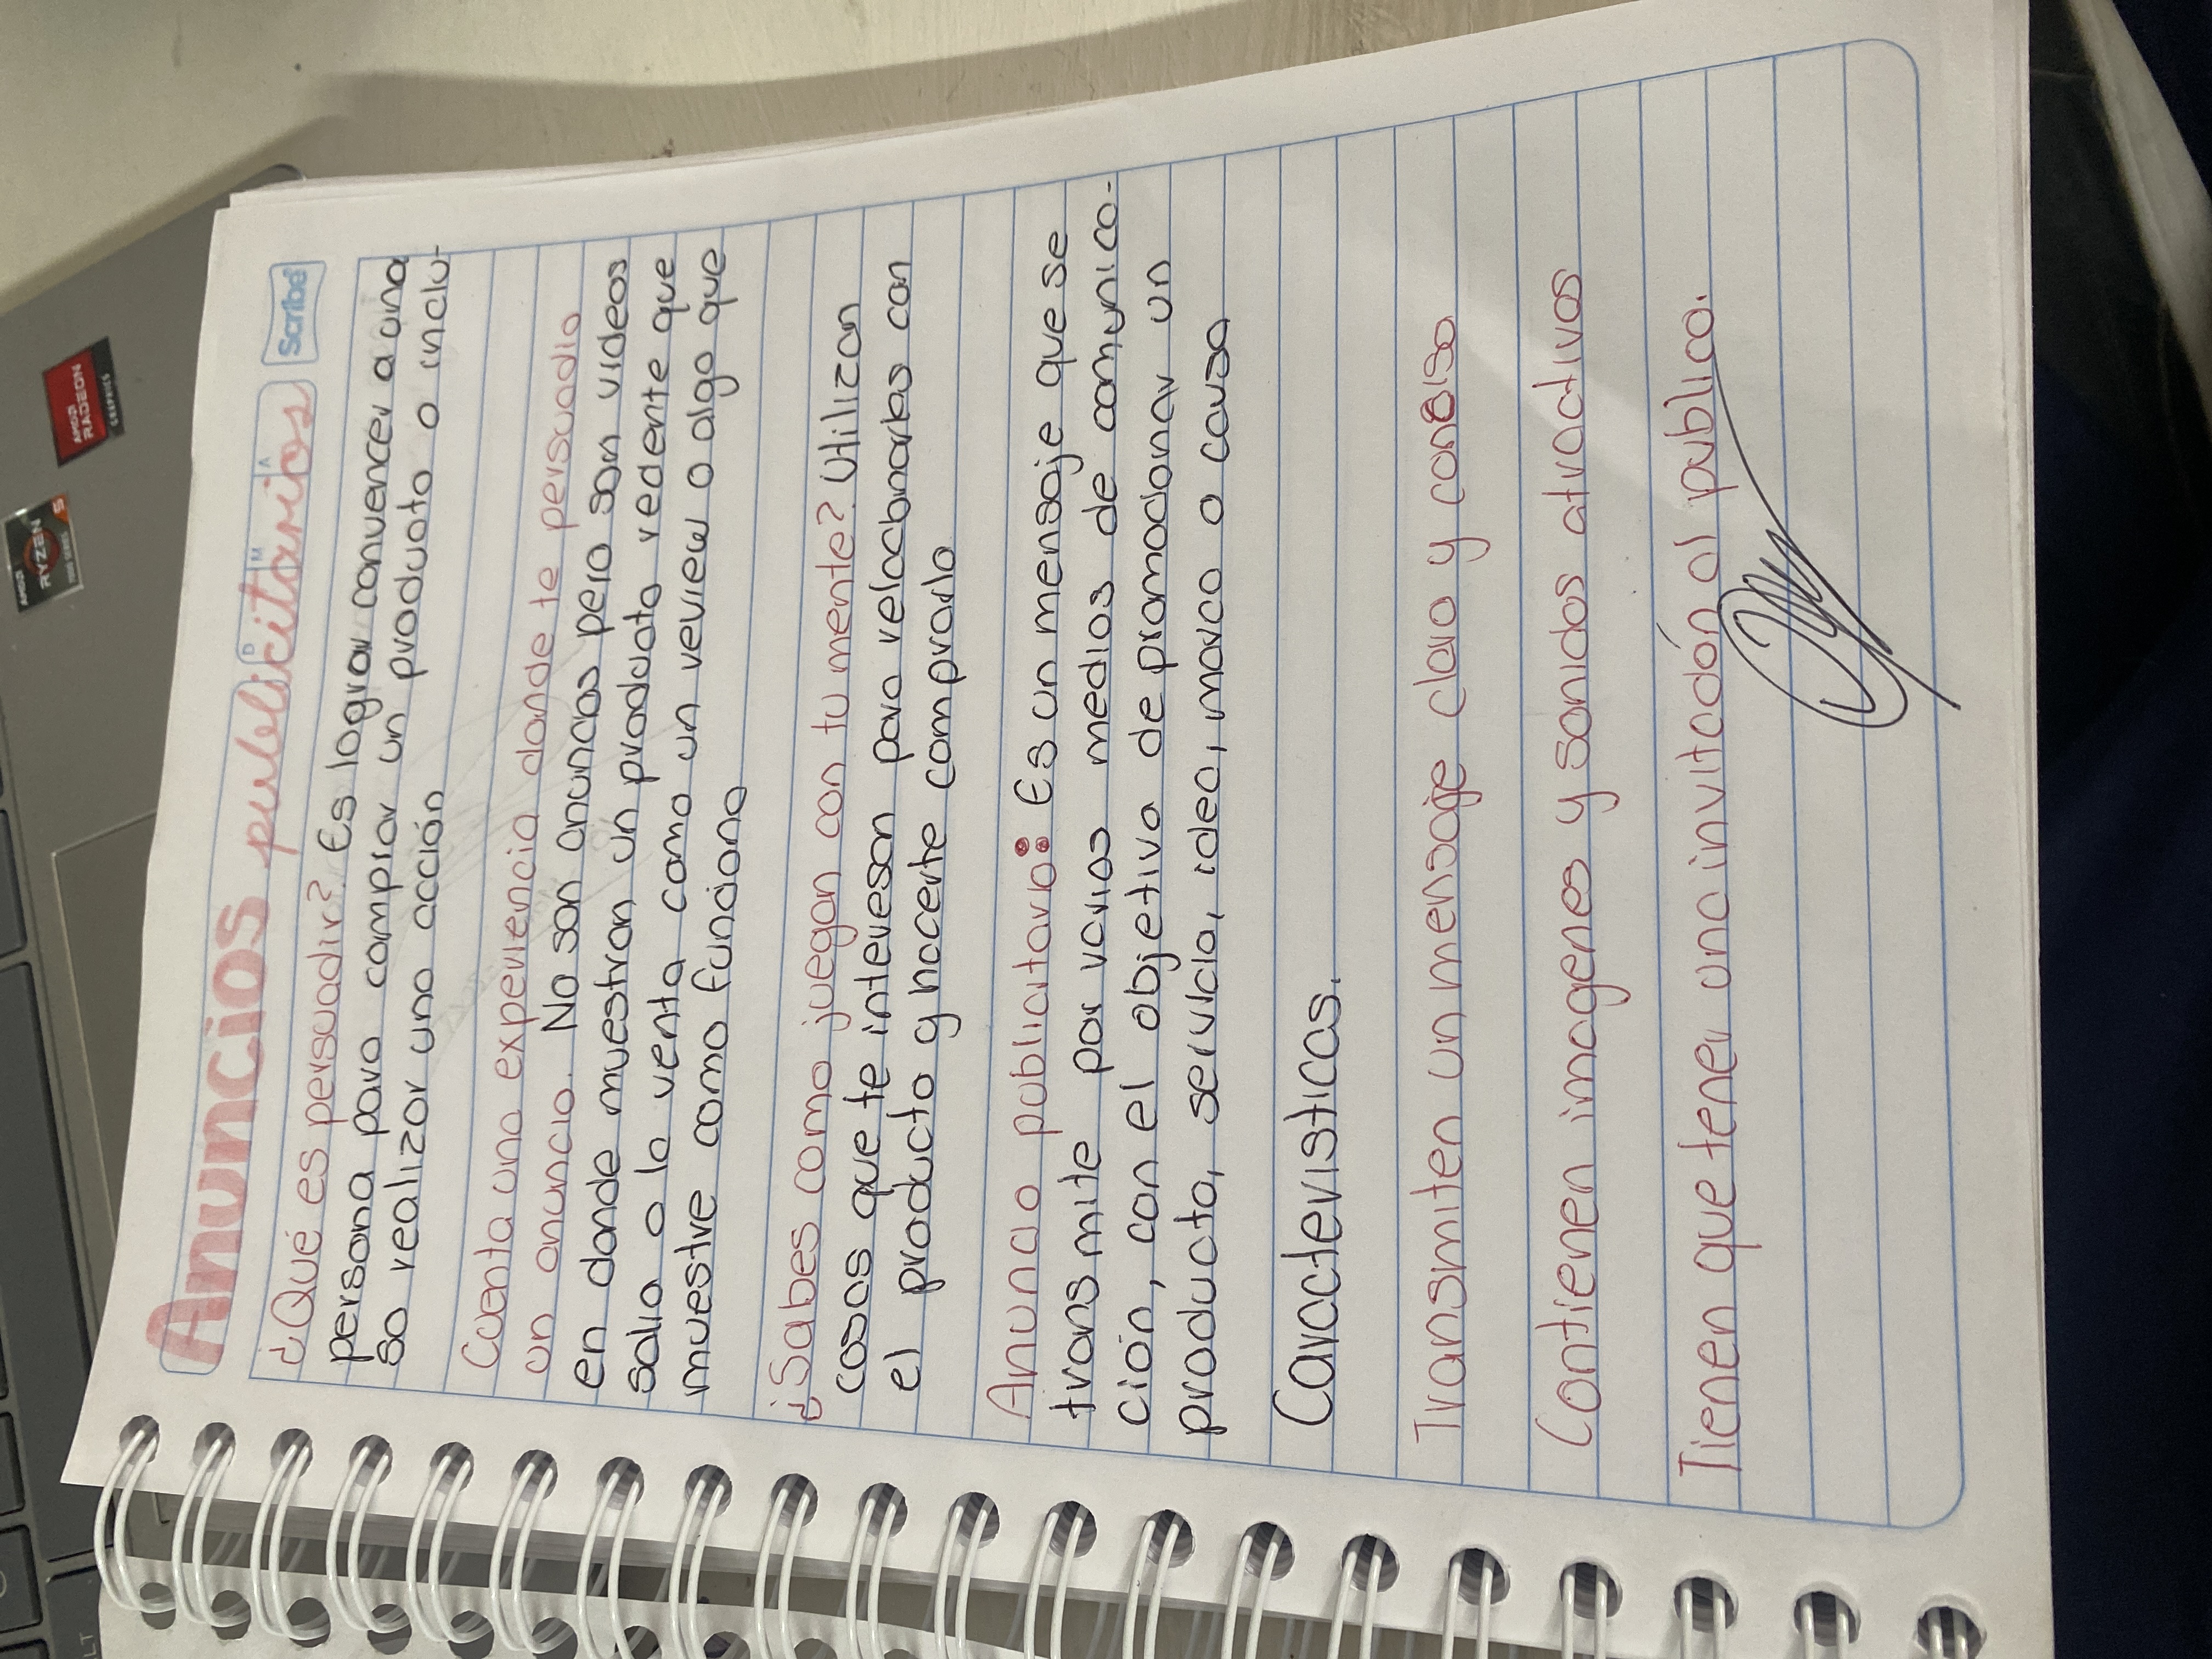 Anuncios publicitarios
Scribe
D M A
¿Qué es persuadir? Es lograr convencer a una
persona para comprar un producto o inclu-
so realizar una acción
Cuenta una experiencia donde te persuadio
un anuncio. No son anuncios pero son videos
en donde muestran un producto redente que
salio a la venta como un review o algo que
muestre como funciona
¿Sabes como juegan con tu mente? Utilizan
cosas que te interesan para relacionarlas con
el producto y hacerte comprarlo
Anuncio publicitario: Es un mensaje que se
transmite por varios medios de comunica-
ción, con el objetivo de promocionar un
producto, servicio, idea, marca o causa
Caracteristicas.
Transmiten un mensaje claro y conciso
Contienen imagenes y sonidos atractivos
Tienen que tener una invitación al publico.
AMD
RYZEN
5
AMD
RADEON
GRAPHICS
LT